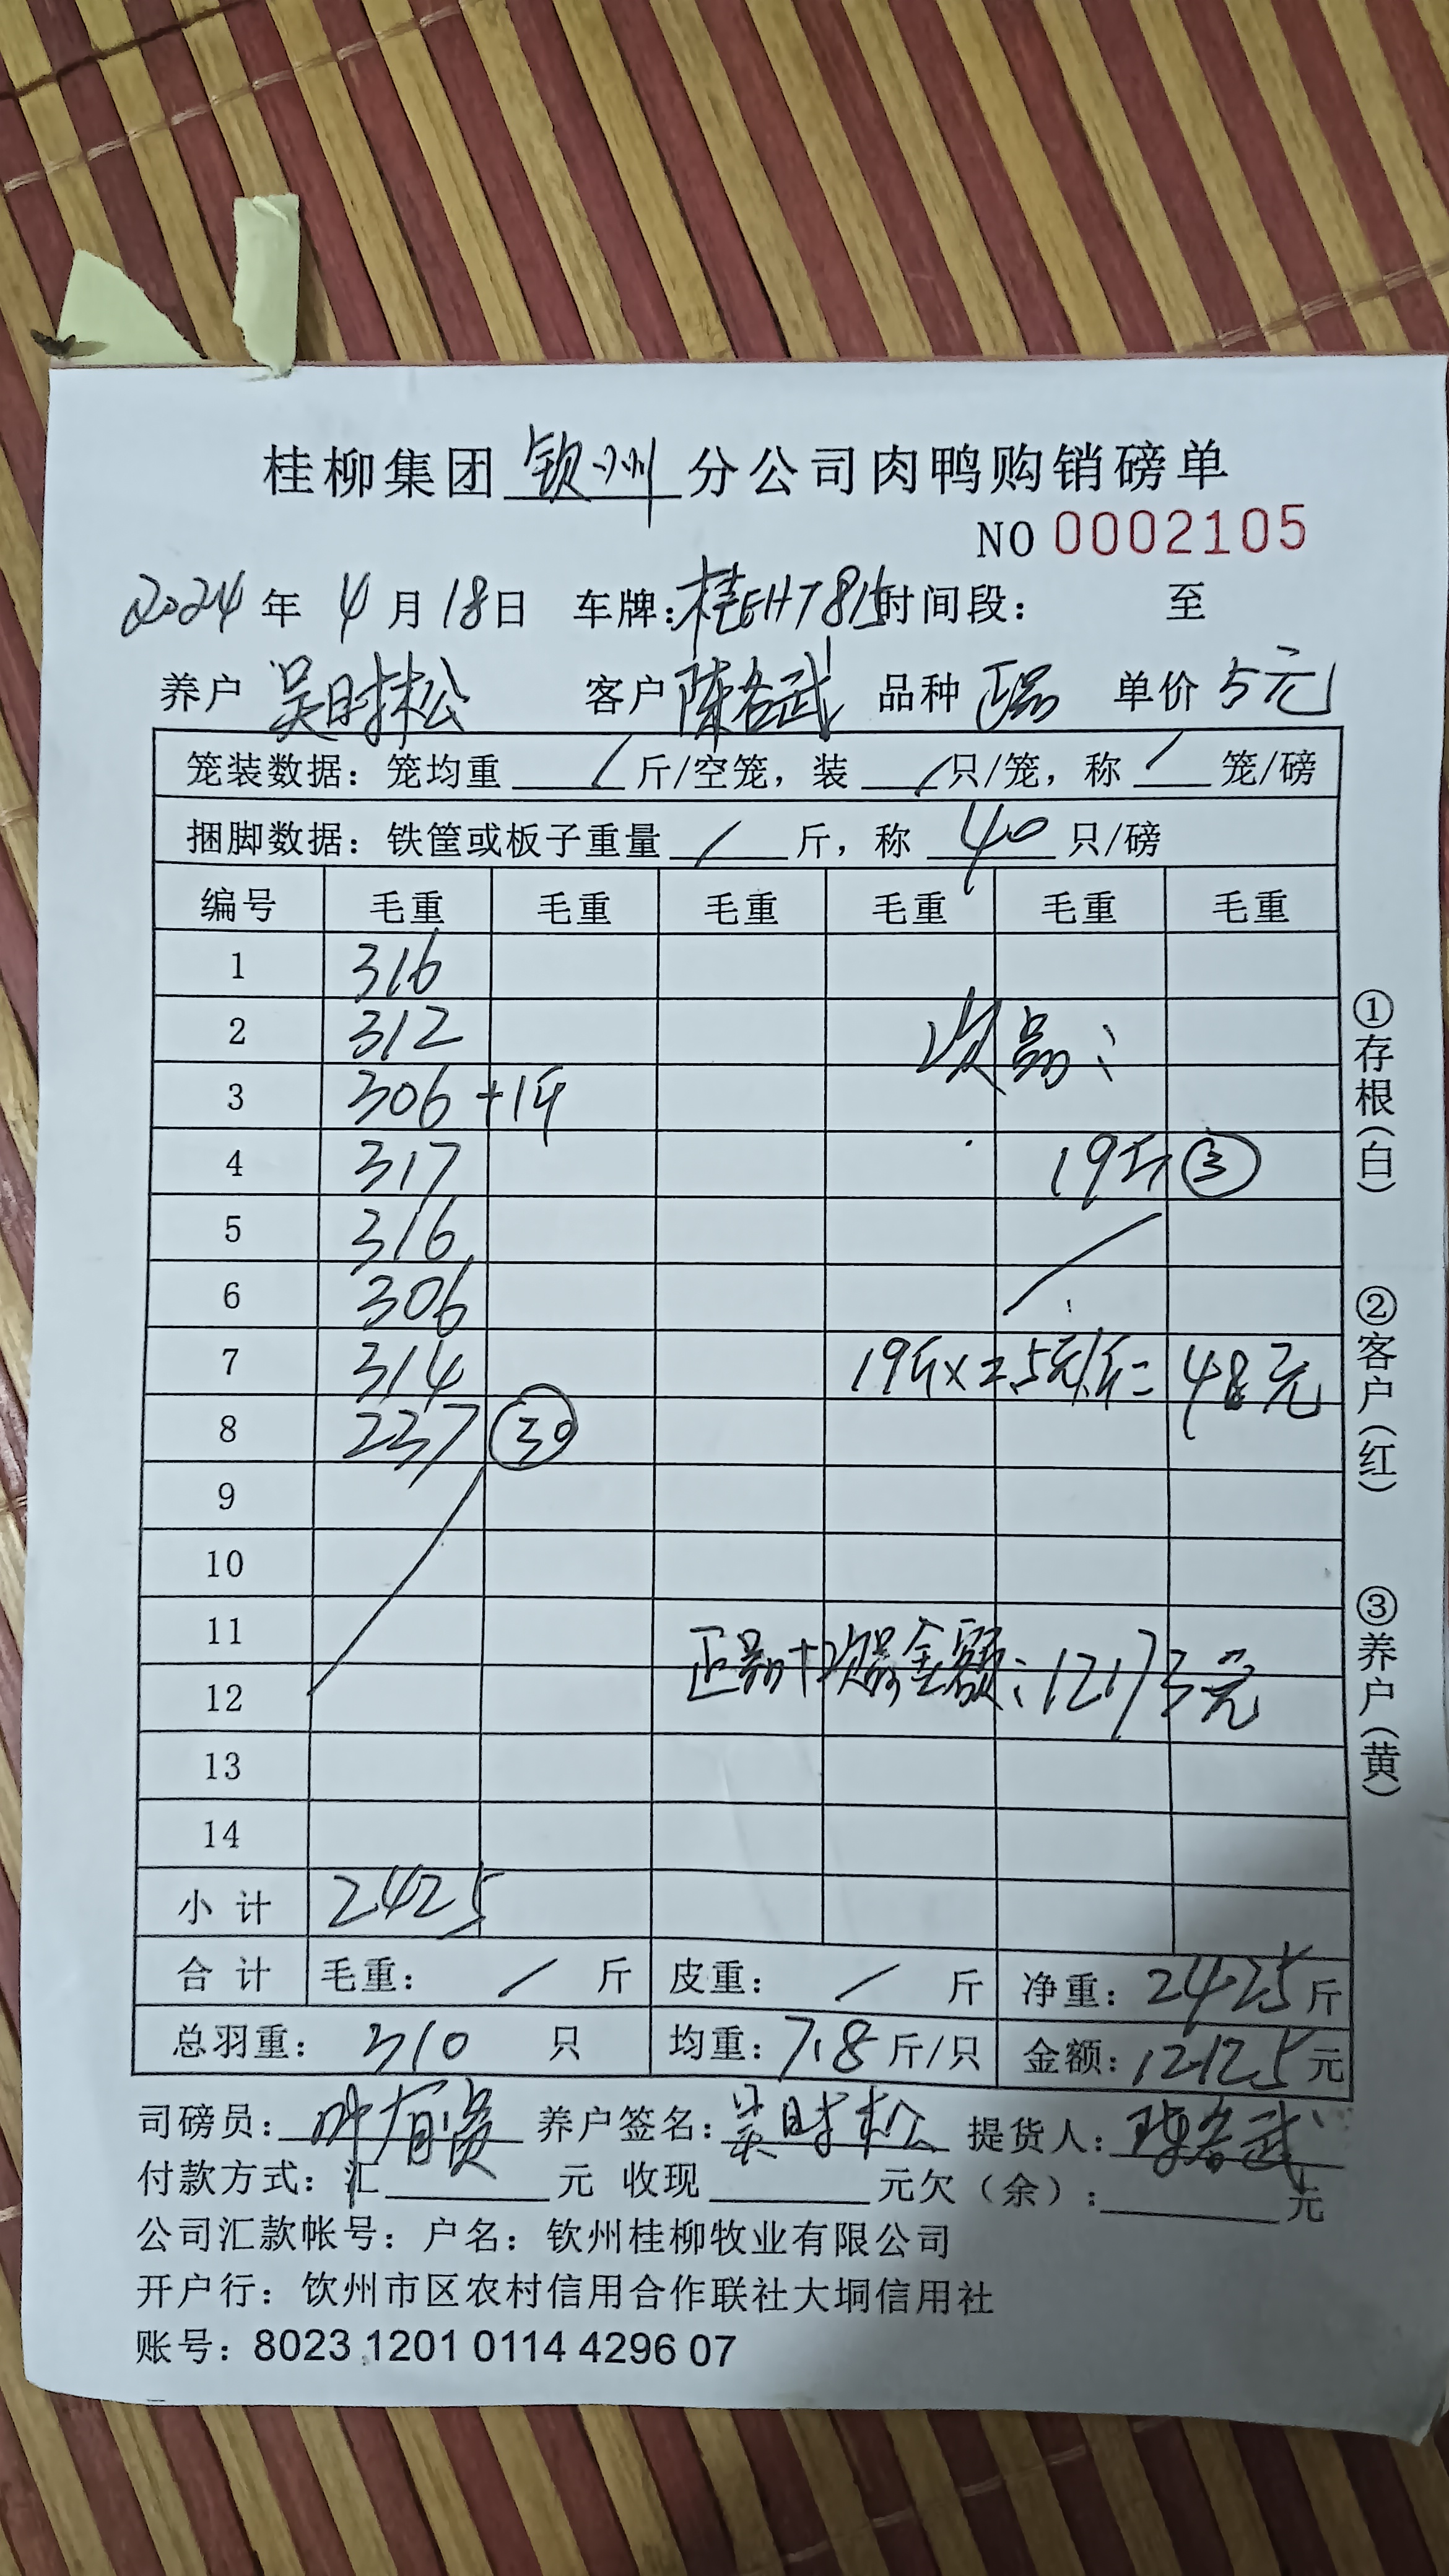 桂柳集团钦州分公司肉鸭购销磅单
NO 0002105
2024年 4月18日 车牌:桂EHT815时间段: 至
养户 吴时松 客户 陈名武 品种 正品 单价 5元
笼装数据:笼均重 / 斤/空笼,装 / 只/笼,称 / 笼/磅
捆脚数据:铁筐或板子重量 / 斤,称 40 只/磅
编号 毛重 毛重 毛重 毛重 毛重 毛重
1 316
2 312 次品:
3 306 +1斤
4 317 19斤 ③
5 316
6 306
7 314 19斤×2.5元/斤= 48元
8 237 ㉚
9
10
11 正品+次品金额:12173元
12
13
14
小计 2425
合计 毛重: / 斤 皮重: / 斤 净重:2425斤
总羽重: 310 只 均重:7.8斤/只 金额:12125元
司磅员: 养户签名:吴时松 提货人:陈名武
付款方式:汇 元 收现 元欠(余): 元
公司汇款帐号:户名:钦州桂柳牧业有限公司
开户行:饮州市区农村信用合作联社大垌信用社
账号:8023 1201 0114 4296 07
①存根(白)
②客户(红)
③养户(黄)